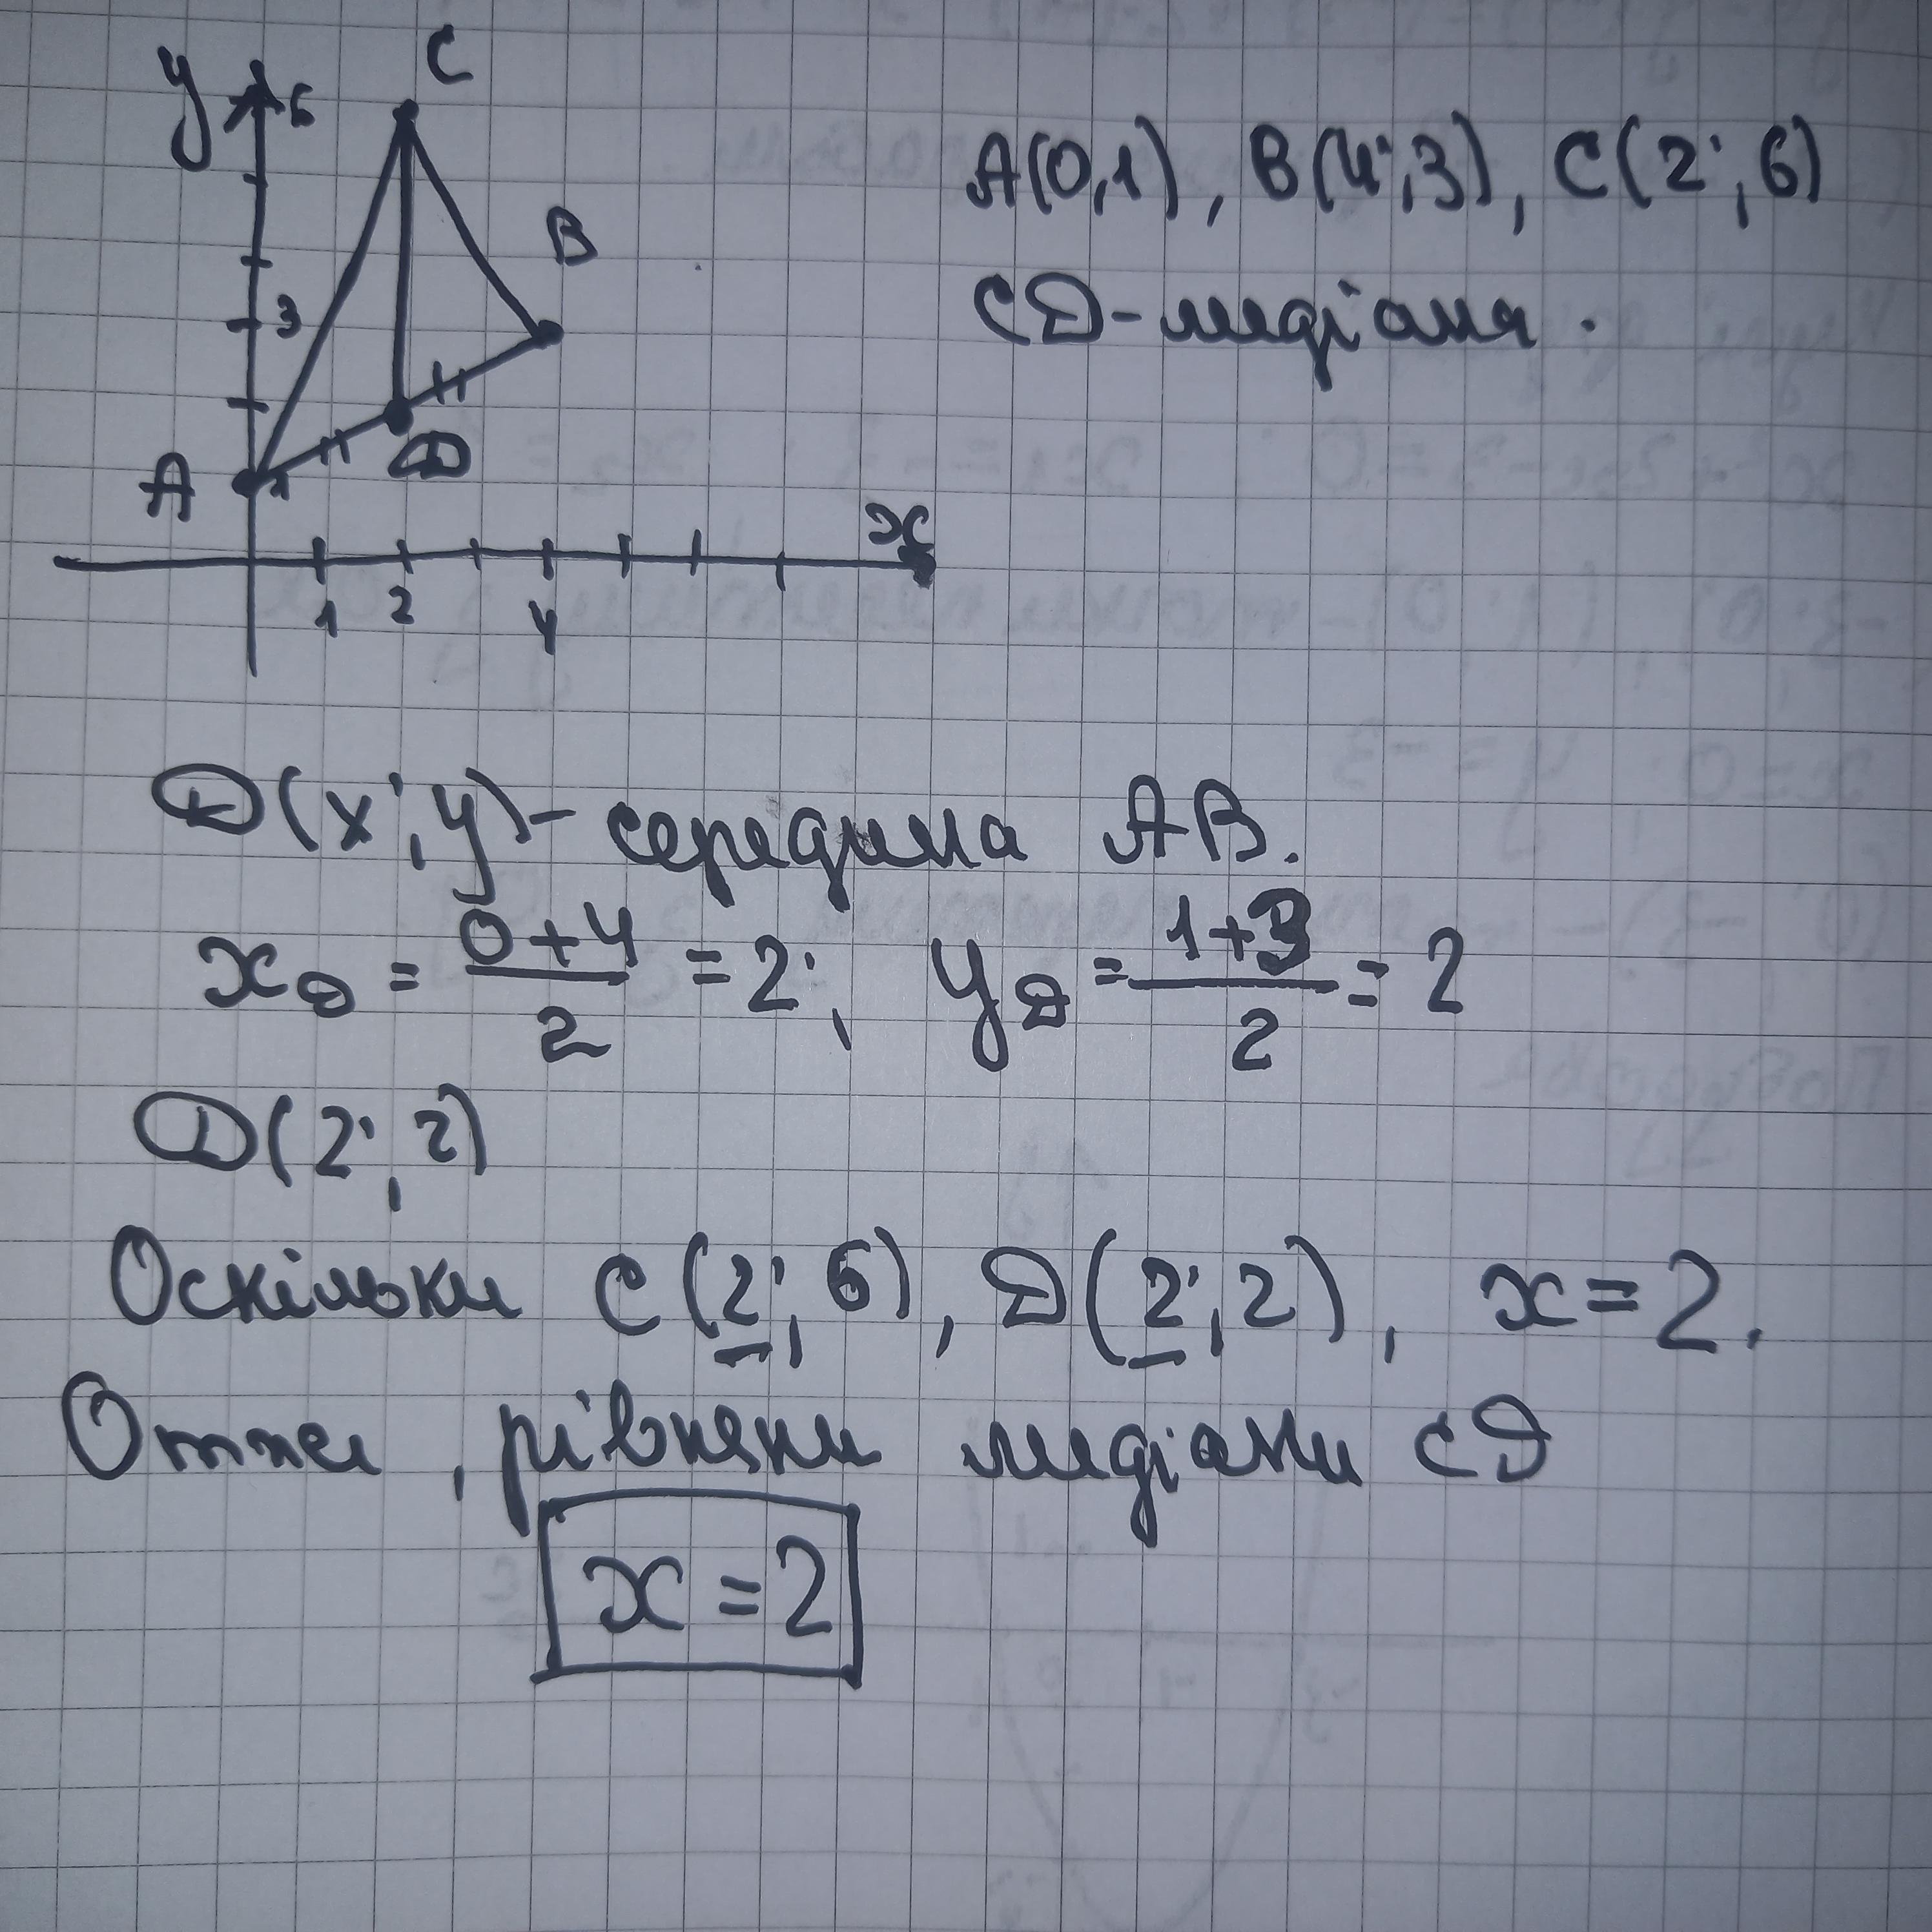 y 6 C
B
3
A 1 D
x
1 2 4
A(0,1), B(4;3), C(2;6)
CD-медіана.
D(x;y)-середина AB.
x_D = (0+4)/2 = 2; y_D = (1+3)/2 = 2
D(2;2)
Оскільки C(2;6), D(2;2), x=2.
Отже, рівняни медіани CD
x=2